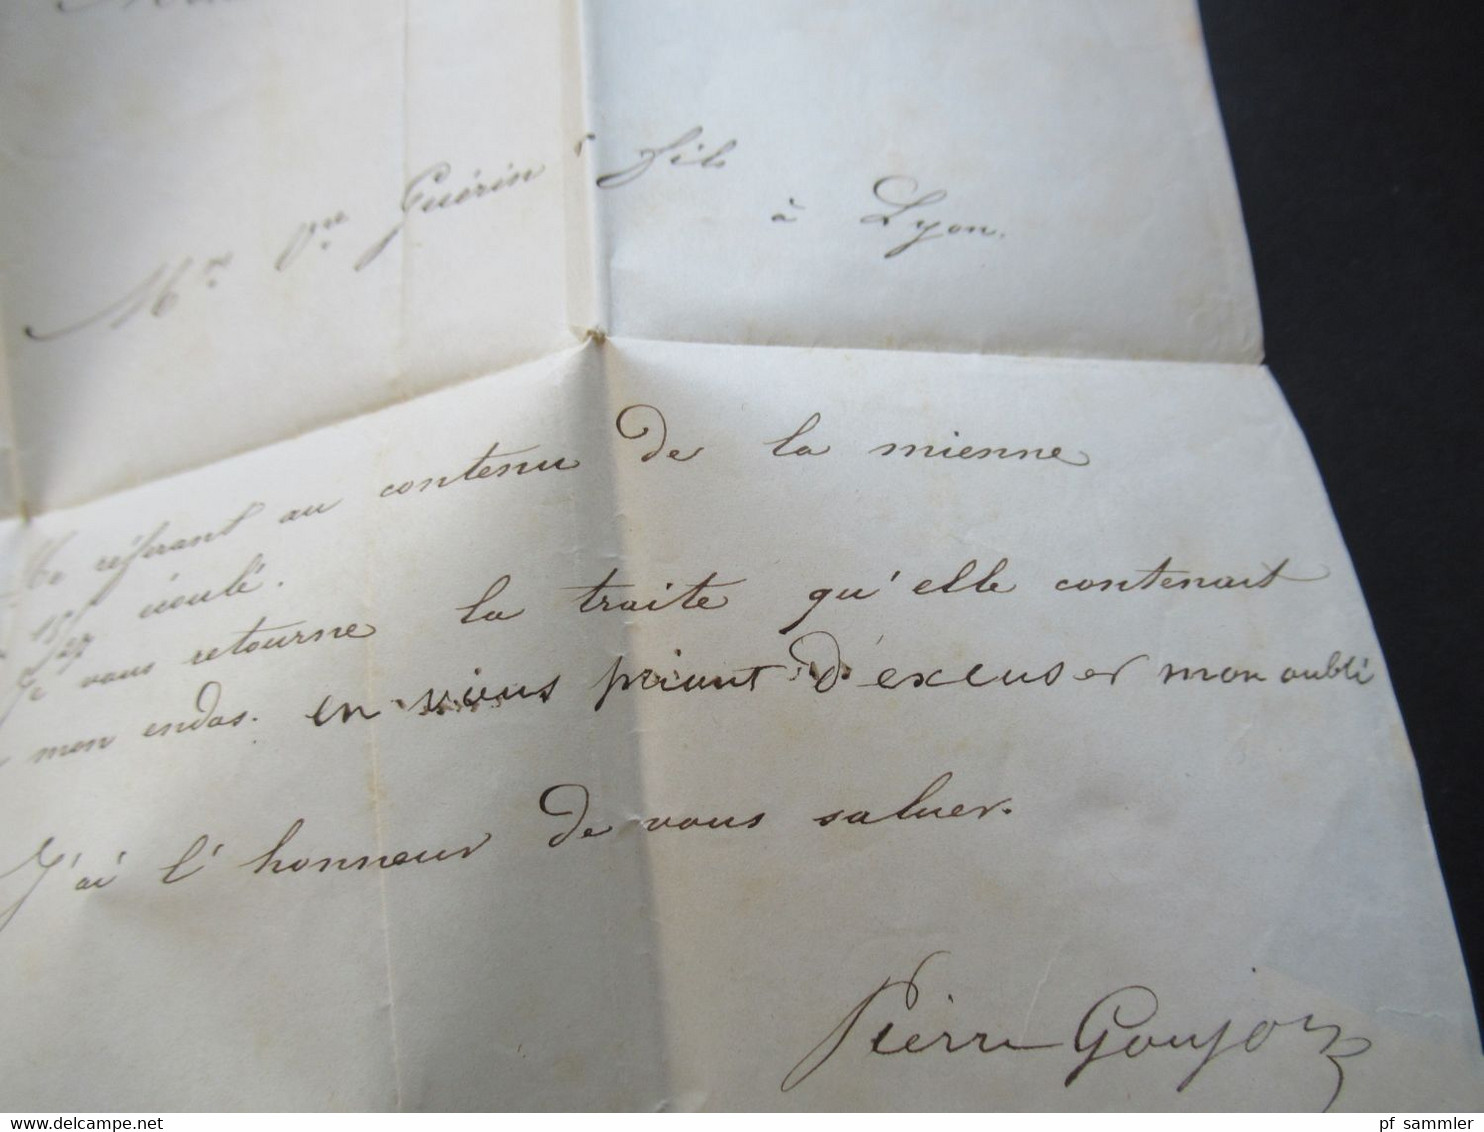 Mrs Vve Guérin & fils
à Lyon.
Me référant au contenu de la mienne
écoulé.
Je vous retourne la traite qu'elle contenait
mon endos. en vous priant d'excuser mon oubli
J'ai l'honneur de vous saluer.
Pierre Goujon
www.delcampe.net
pf_sammler